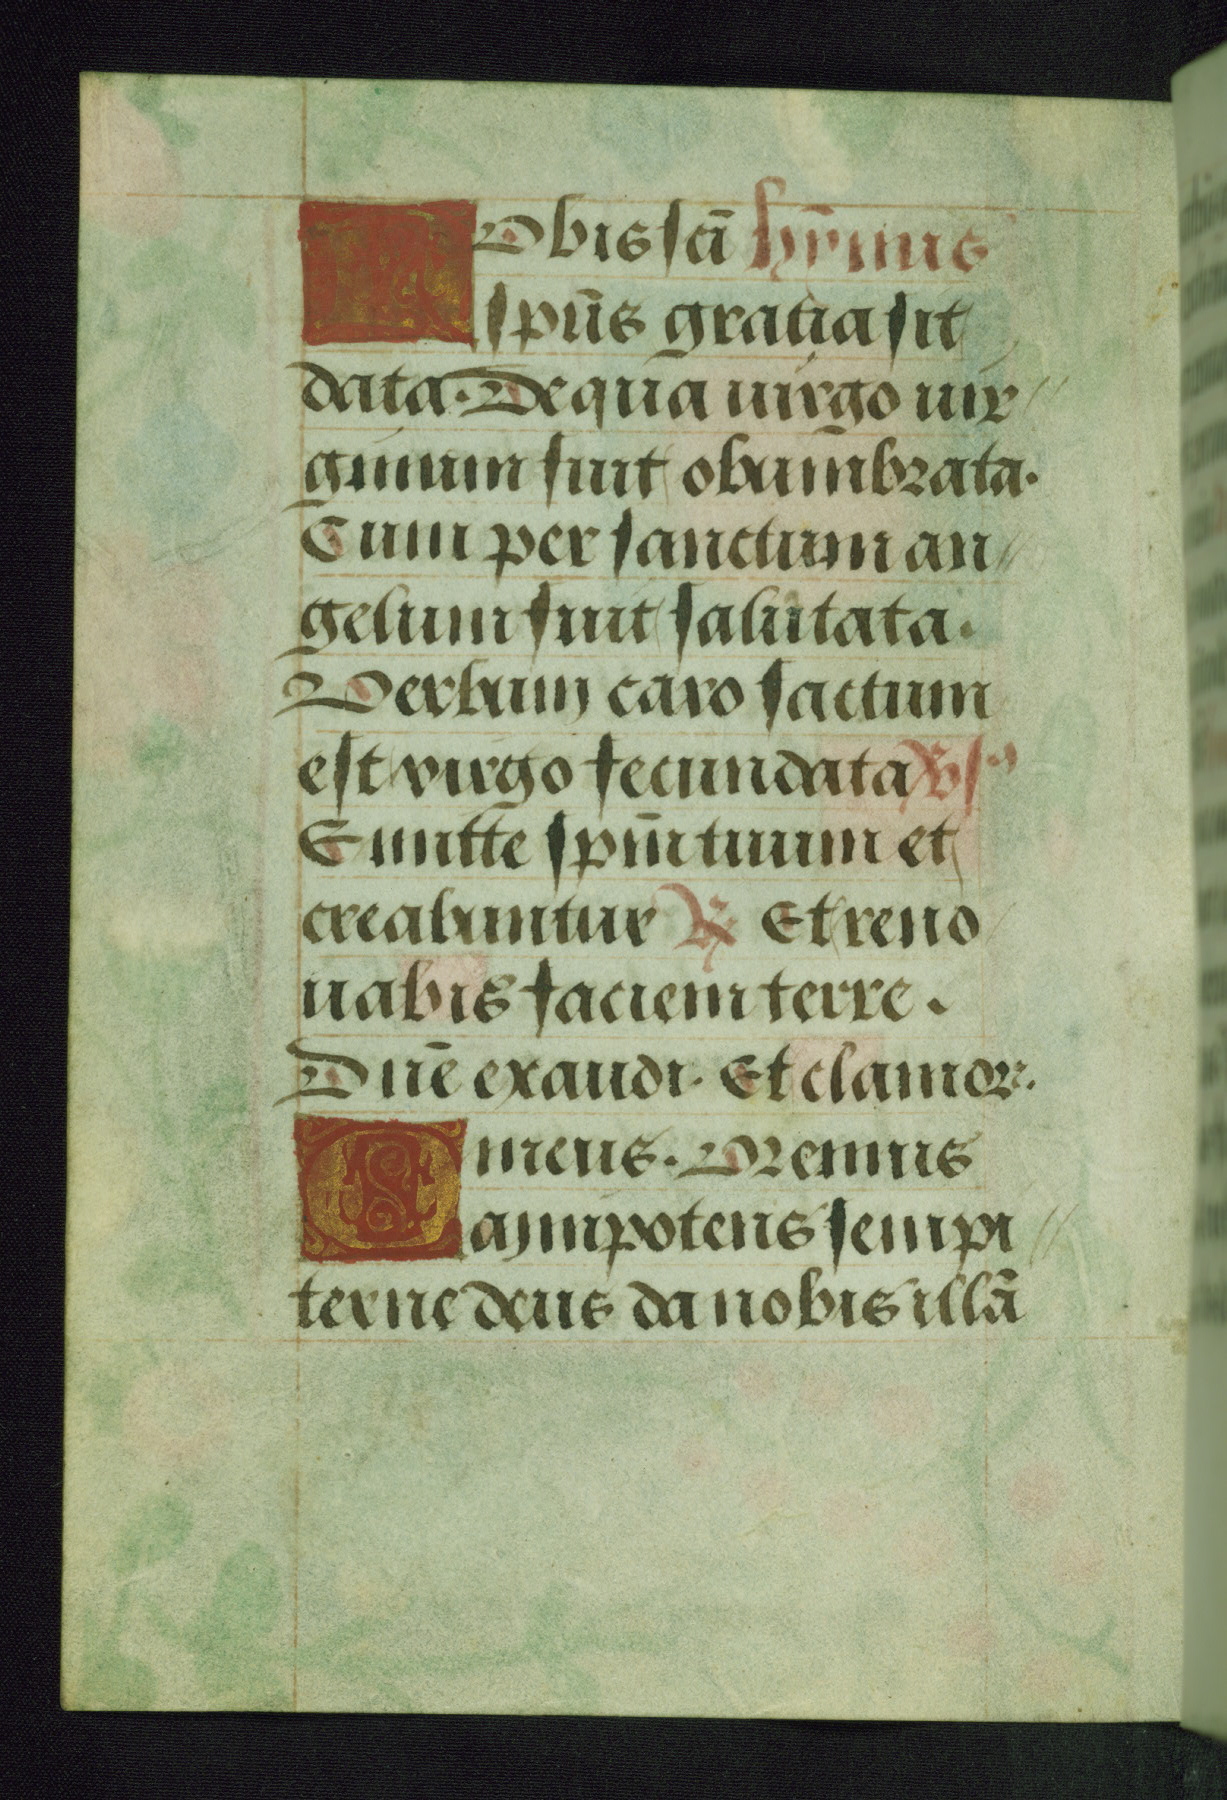 NObis scī hȳmnus
spūs gratia sit
data. De qua uirgo uir
ginum fuit obum̄brata.
Cum per sanctum an
gelum fuit salutata.
Verbum caro factum
est virgo fecundata v̄s
Emitte spm̄ tuum et
creabuntur ℟ Et reno
uabis faciem terre.
Dn̄e exaudi. Et clamor.
meus. Oremus
Omnipotens sempi
terne deus da nobis illā